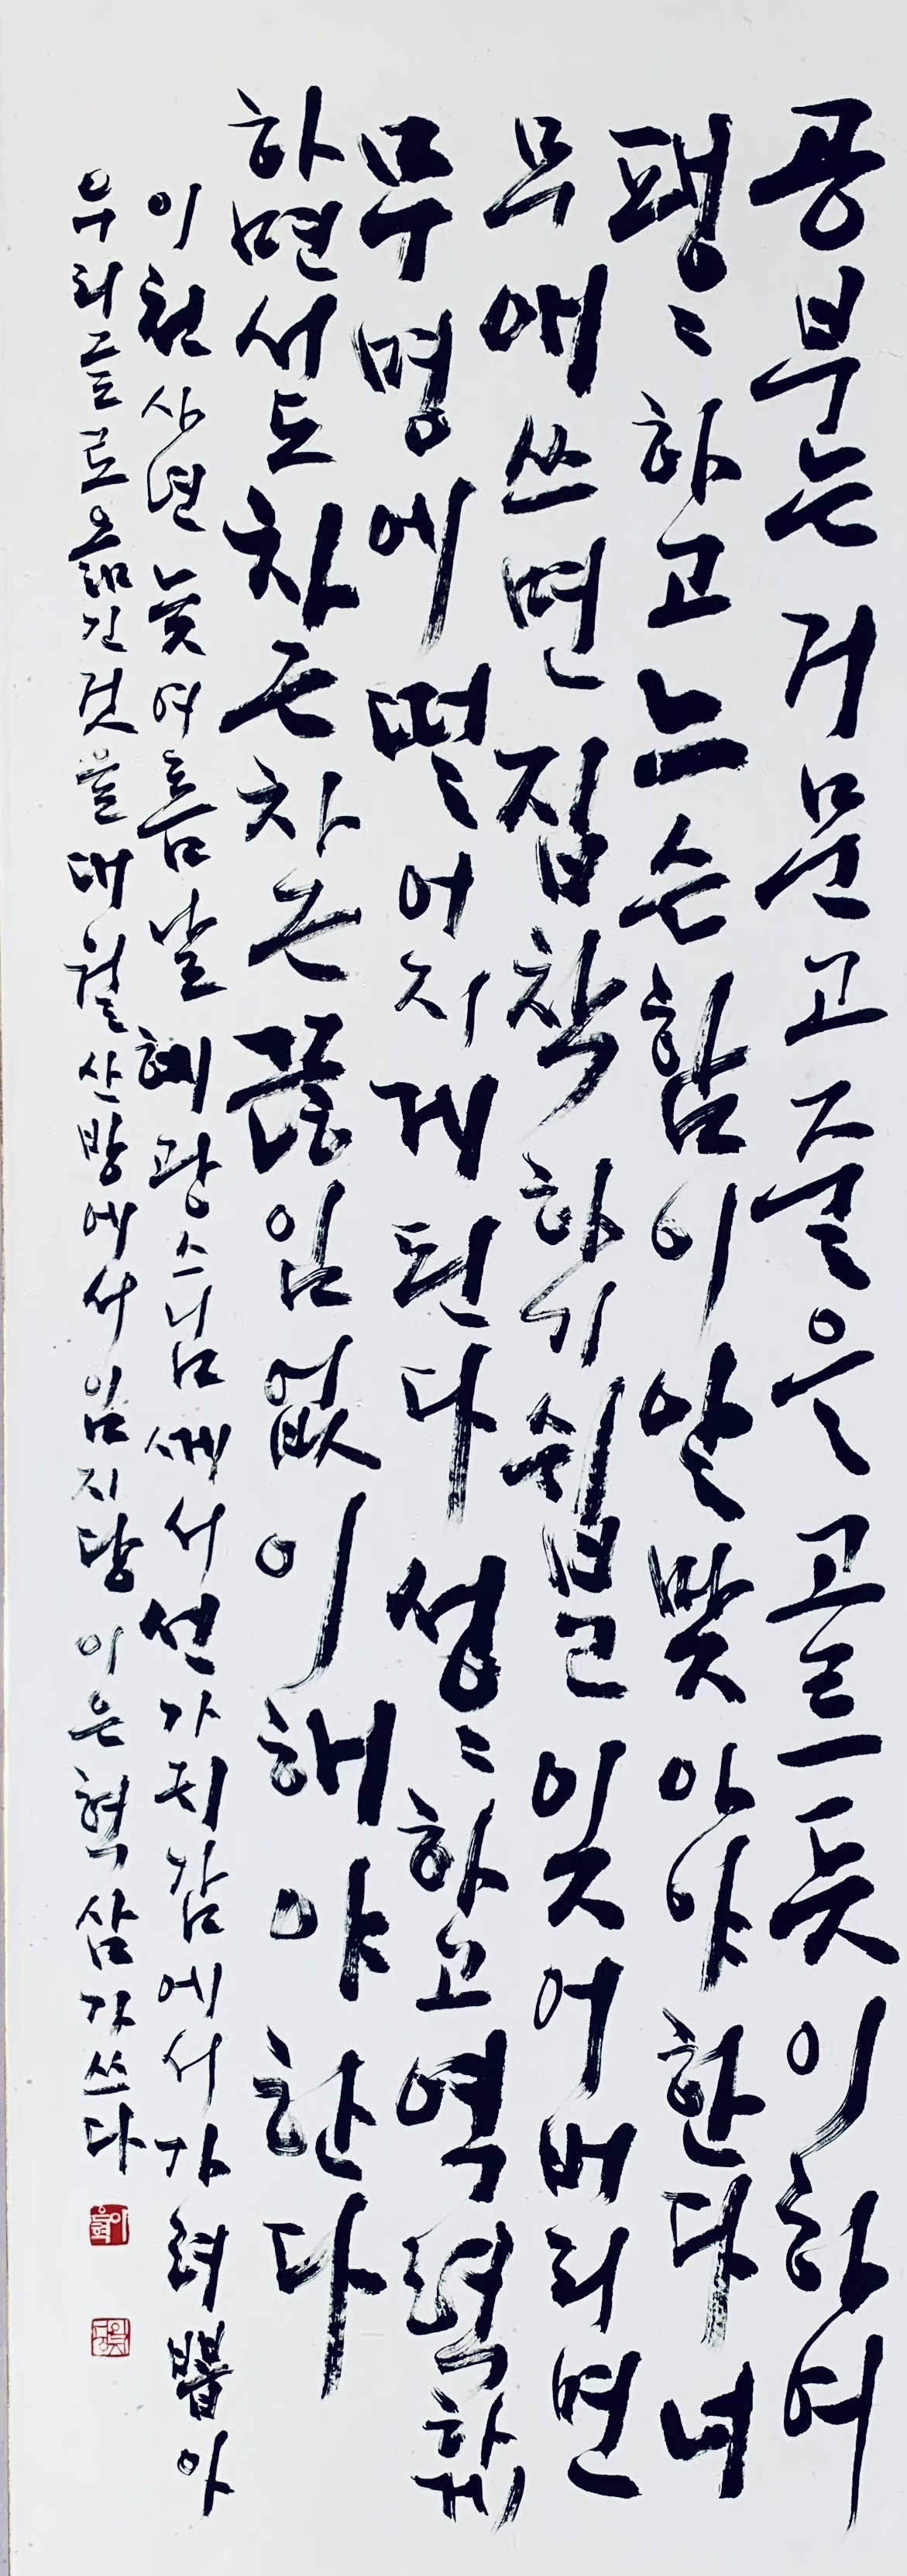 공부는 거문고 줄을 고르듯이 하여
팽〻하고 느슨함이 알맞아야 한다 너
무 애쓰면 집착하기 쉽고 잊어버리면
무명에 떨어지게 된다 성〻하고 역력하게
하면서도 차근차근 끊임없이 해야 한다
이천사년 늦여름날 혜광스님께서 선가귀감에서 가려 뽑아
우리글로 옮긴 것을 대월산방에서 임지당 이은혁 삼가 쓰다